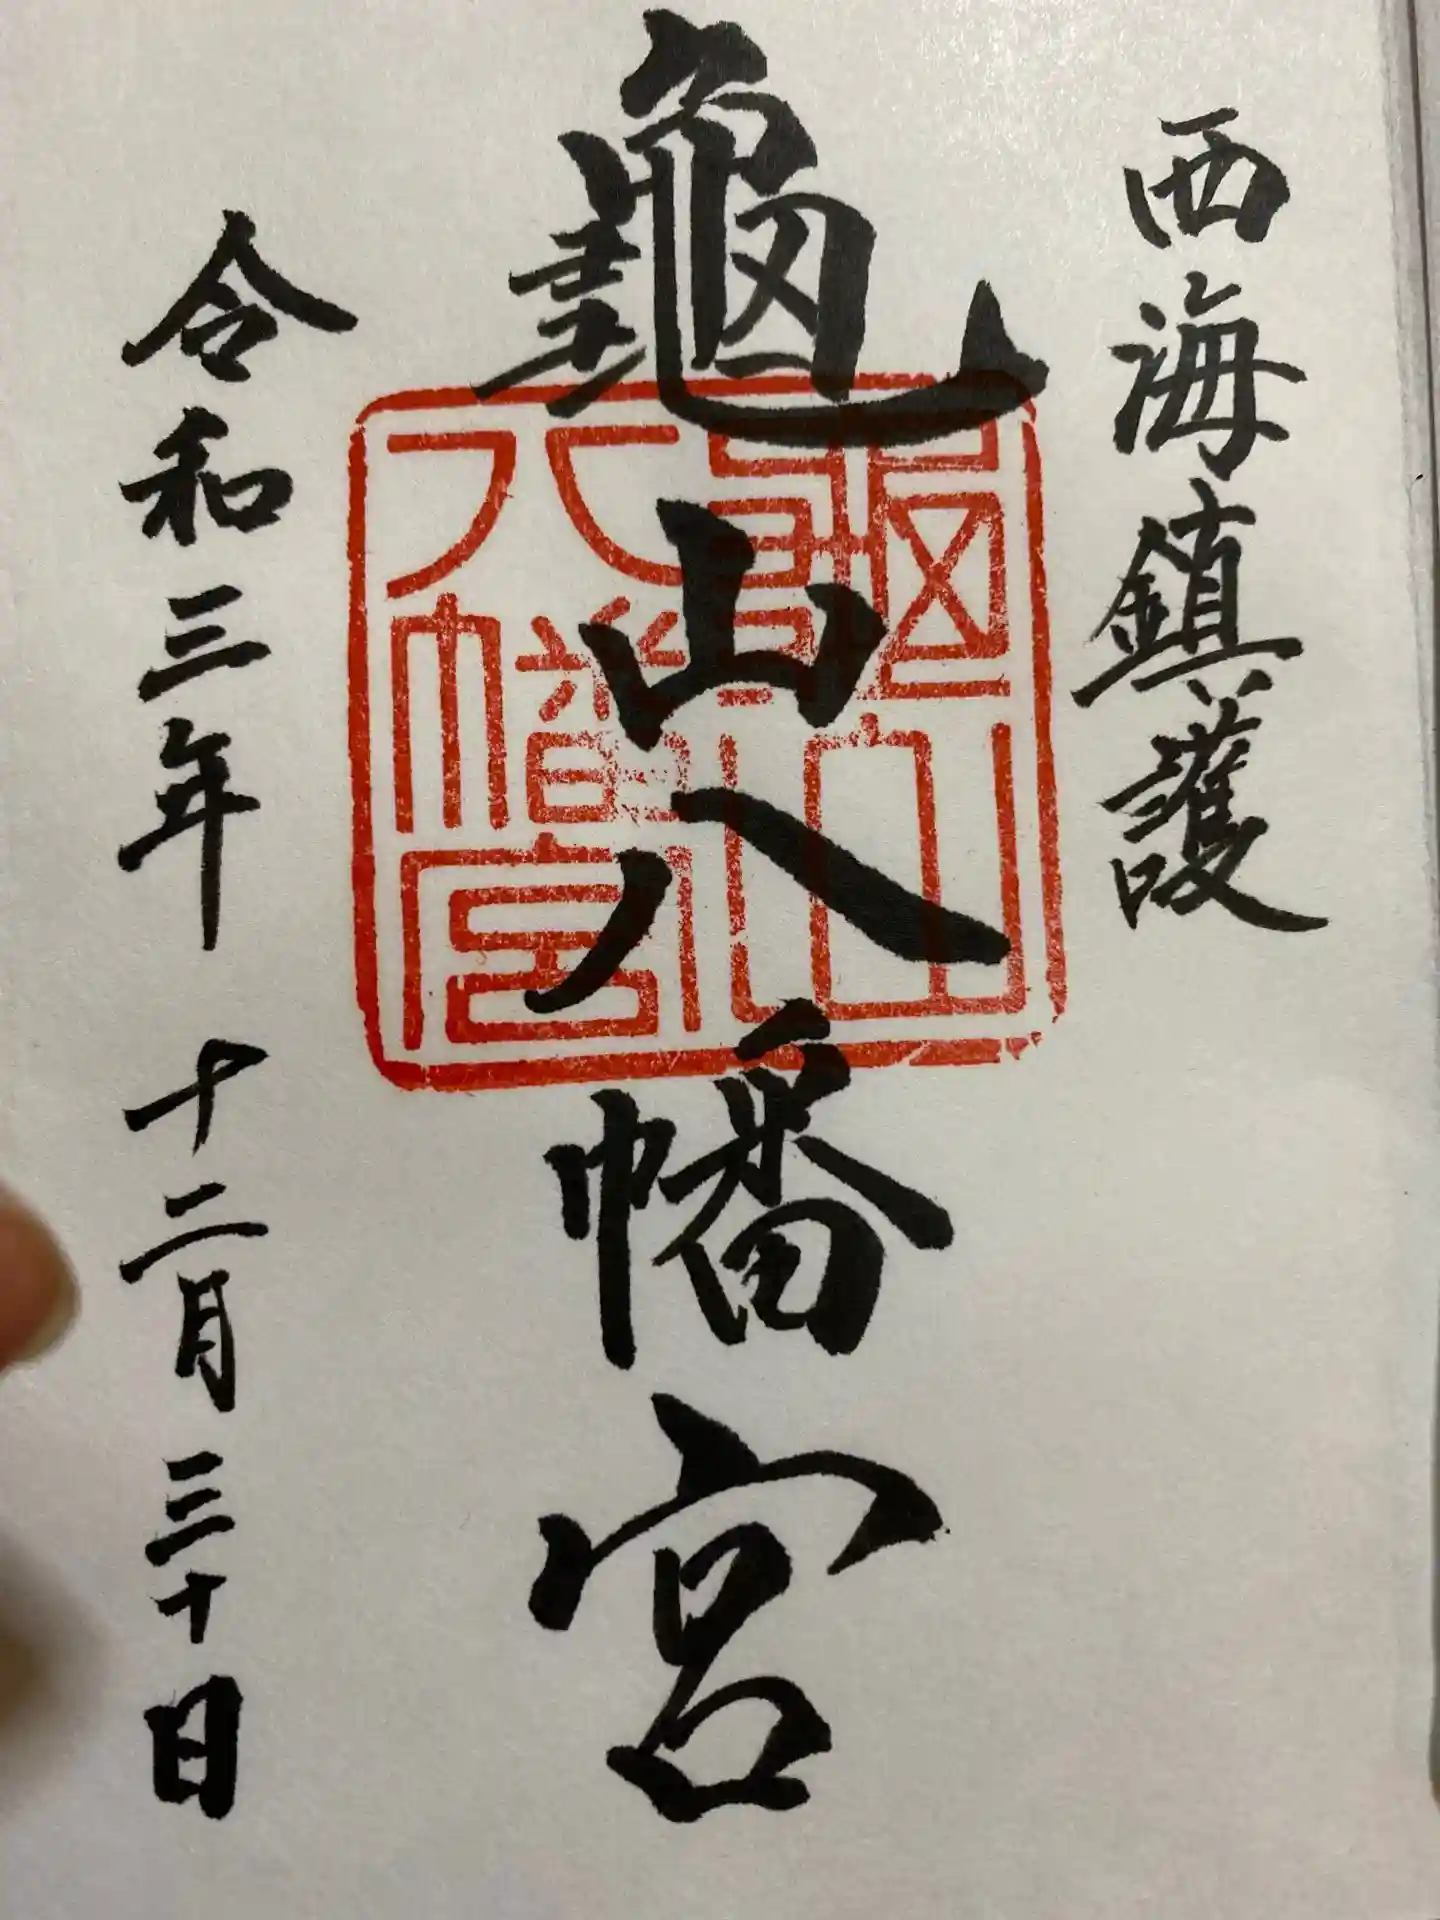 西海鎮護
龜山八幡宮
龜山
八幡宮
令和三年 十二月三十日